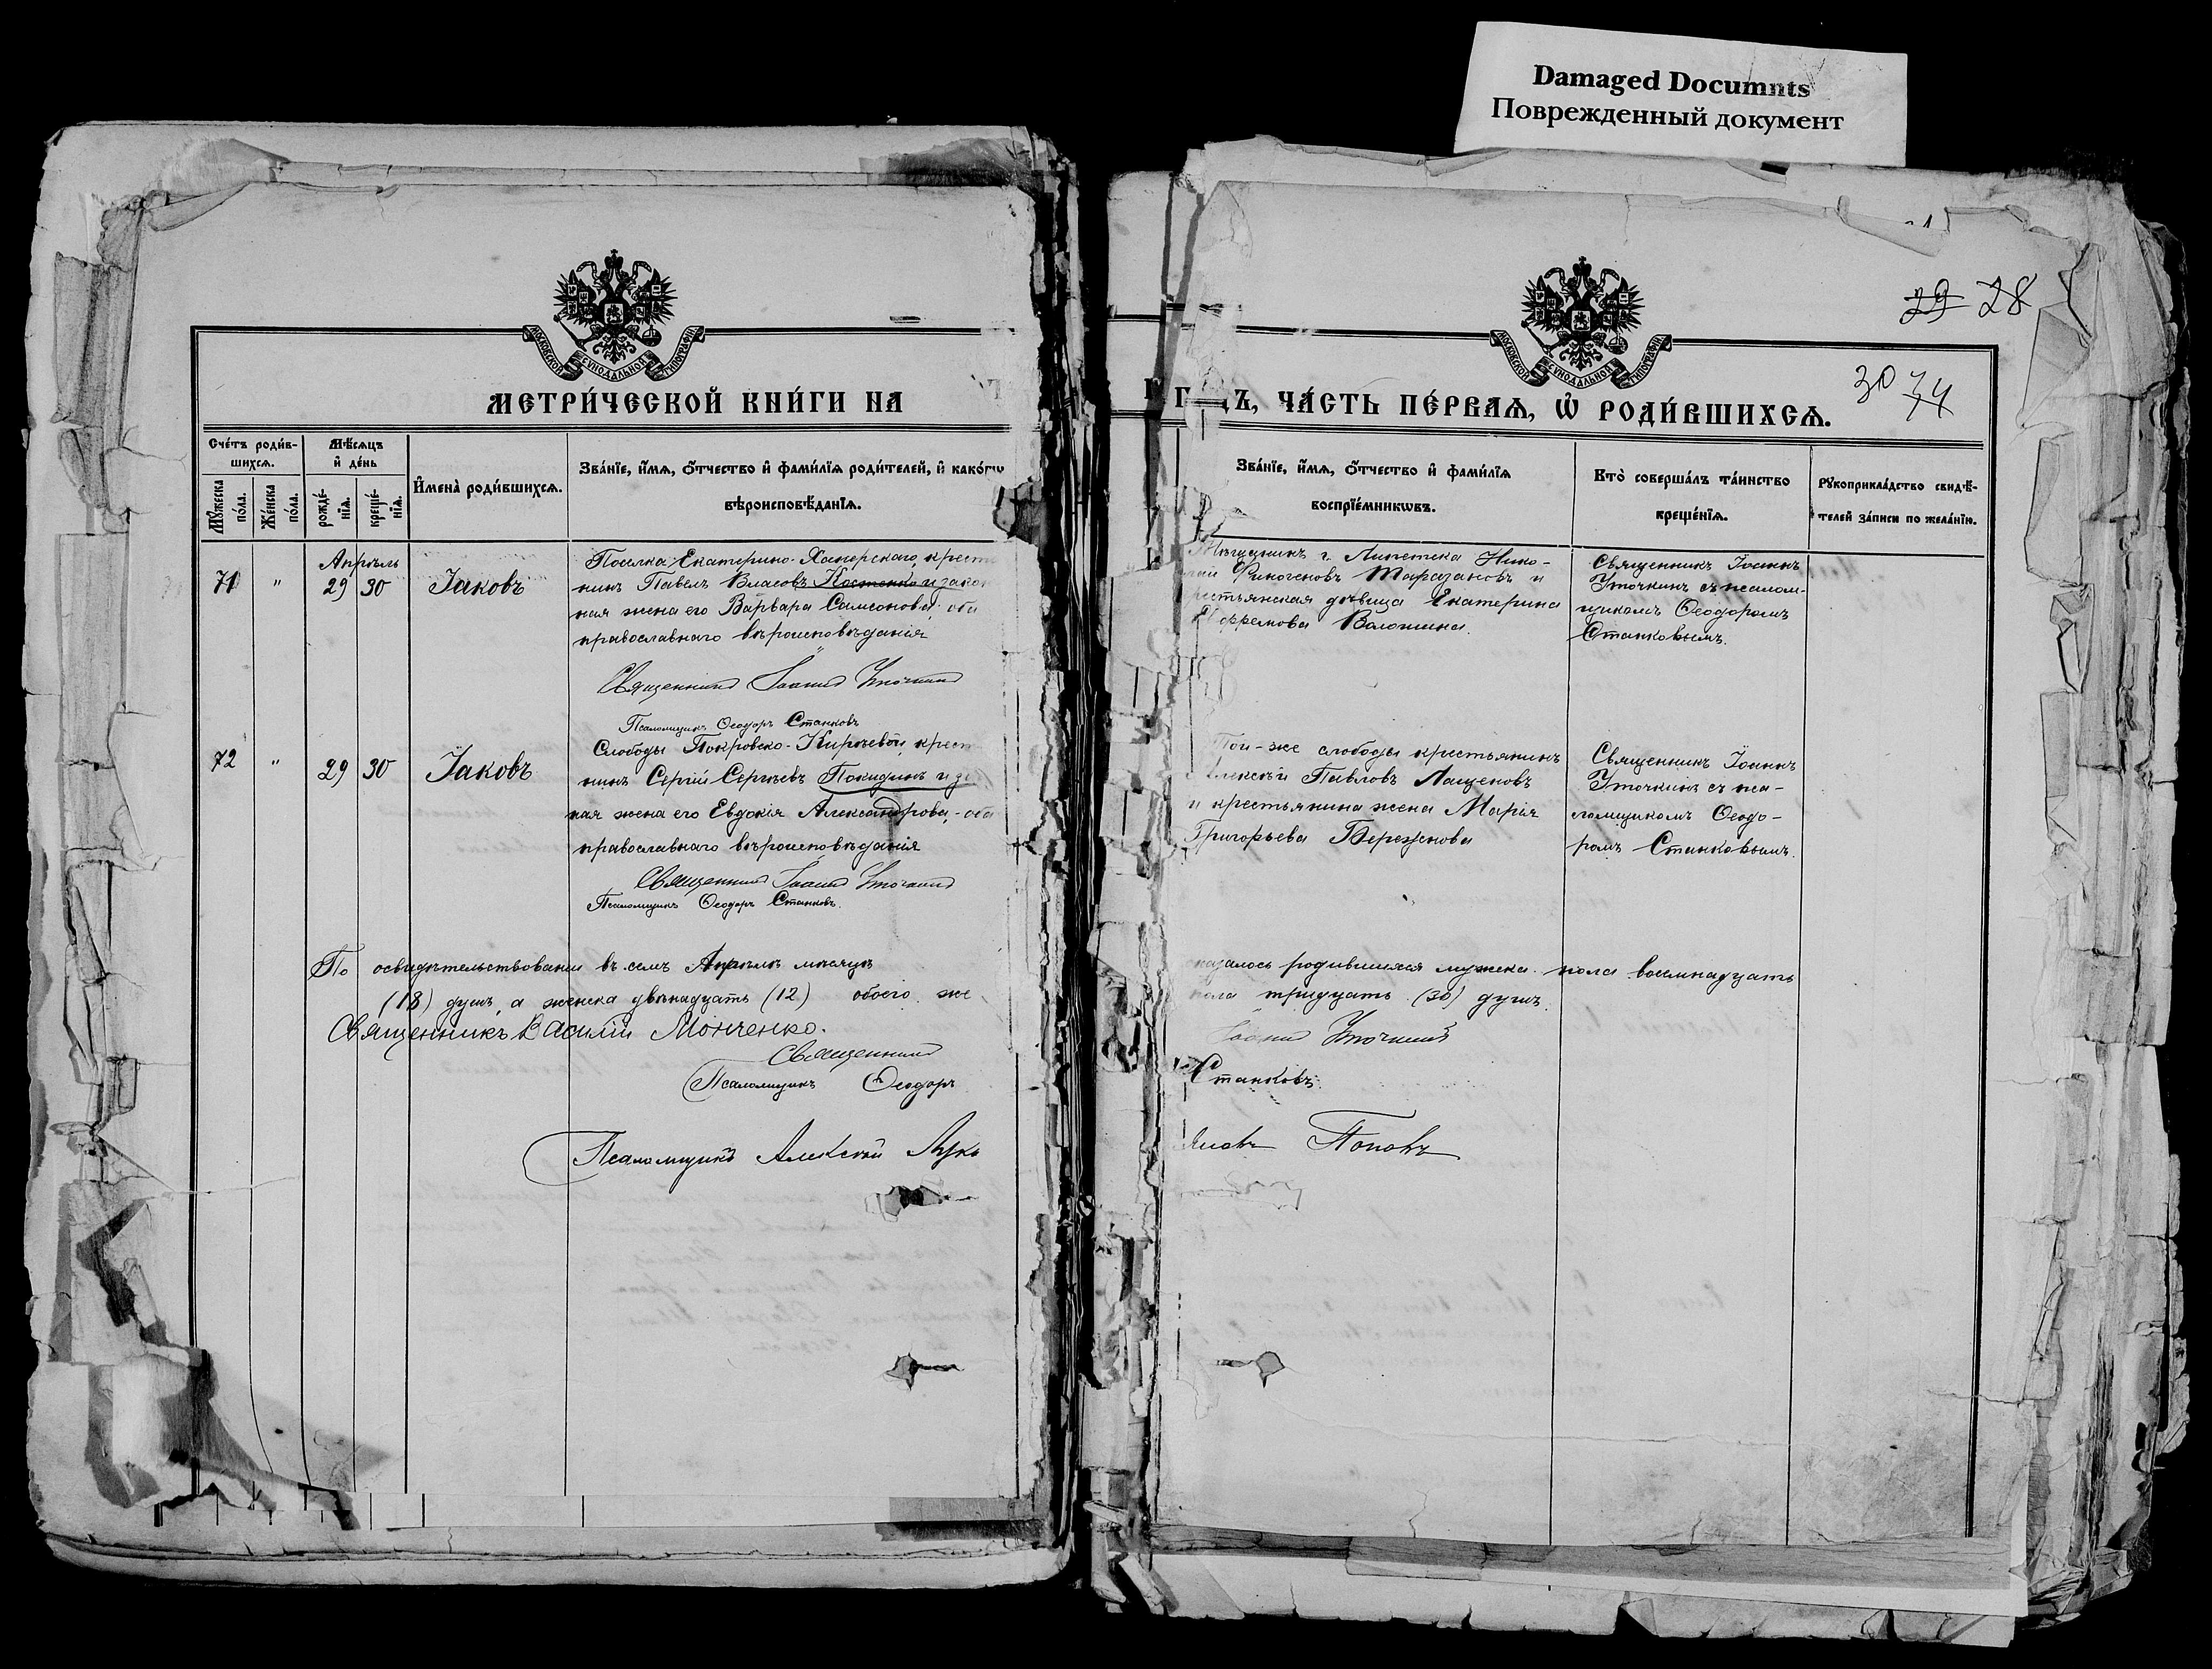 Damaged Documnts
Поврежденный документ
29 28
30 74
МОСКОВСКОЙ СѴНОДАЛЬНОЙ ТИПОГРАФІИ
МОСКОВСКОЙ СѴНОДАЛЬНОЙ ТИПОГРАФІИ
МЕТРИ́ЧЕСКОЙ КНИ́ГИ НА
Г ДЪ, ЧА́СТЬ ПЕ́РВАѦ, Ѡ҆ РОДИ́ВШИХСѦ.
Сче́тъ роди́в-
шихсѧ.
Мꙋжеска по́ла.
Же́нска по́ла.
Мѣ́сѧцъ
и҆ де́нь
рожде́-
нїѧ.
креще́-
нїѧ.
И҆мена̀ роди́вшихсѧ.
Зва́нїе, и҆́мѧ, ѻ҆́тчество и҆ фами́лїѧ роди́телей, и҆ како́гѡ
вѣроисповѣ́данїѧ.
Зва́нїе, и҆́мѧ, ѻ҆́тчество и҆ фами́лїѧ
воспрїе́мникѡвъ.
Кто̀ соверша́лъ та́инство
креще́нїѧ.
Рꙋкоприкла́дство свидѣ́-
телей за́писи по жела́нїю.
Апрѣль
71 " 29 30 Іаковъ
Поселка Екатерино-Хоперскаго, крест
нинъ Павелъ Власовъ Костенко и закон
ная жена его Варвара Самсонова, оба
православнаго вѣроисповѣданія
Священникъ Іоаннъ Уточкинъ
Псаломщикъ Ѳеодоръ Станковъ
г. Липетска Нико-
лай Финогеновъ и
крестьянская дѣвица Екатерина
Волошина.
Священникъ Іоаннъ
Уточкинъ съ псалом-
щикомъ Ѳеодоромъ
Станковымъ.
72 " 29 30 Іаковъ
Слободы Покровско-Киреевой крест
нинъ Сергій Сергѣевъ Покидинъ и за
ная жена его Евдокія Александрова, - оба
православнаго вѣроисповѣданія
Священникъ Іоаннъ Уточкинъ
Псаломщикъ Ѳеодоръ Станковъ.
Той-же слободы крестьянинъ
Алексѣй Павловъ Лащеновъ
и крестьянина жена Марія
Григорьева Береженова
Священникъ Іоаннъ
Уточкинъ съ пса-
ломщикомъ Ѳеодо-
ромъ Станковымъ.
По освидѣтельствованіи въ семъ Апрѣлѣ мѣсяцѣ оказалось родившихся мужеска пола восемнадцать
(18) душъ, а женска двѣнадцать (12) обоего же пола тридцать (30) душъ.
Священникъ Василій Монченко.
Священникъ Іоаннъ Уточкинъ
Псаломщикъ Ѳеодоръ Станковъ.
Псаломщикъ Алексѣй Лукьяновъ Поповъ